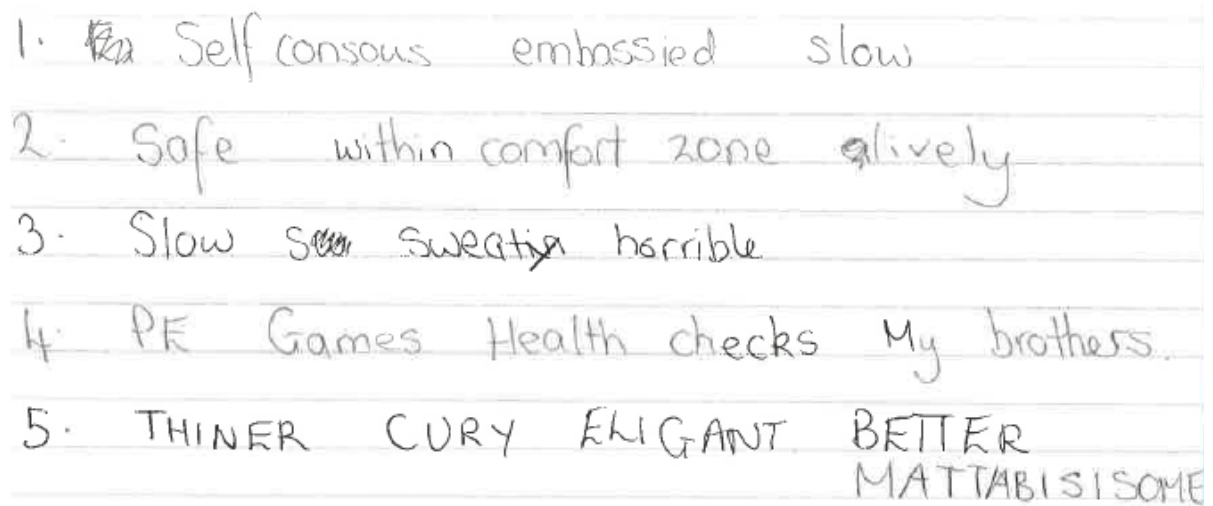 1. Self consous embassied slow
2. Safe within comfort zone alively
3. Slow sweaty horrible
4. PE Games Health checks My brothers.
5. THINER CURY ELIGANT BETTER
MATTABISISOME